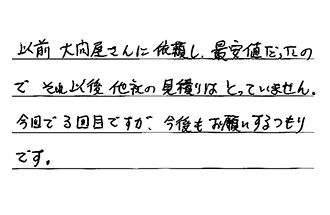 以前 大問屋さんに依頼し、最安値だったの
で それ以後 他社の見積りは とっていません。
今回で3回目ですが、今後も お願いするつもり
です。